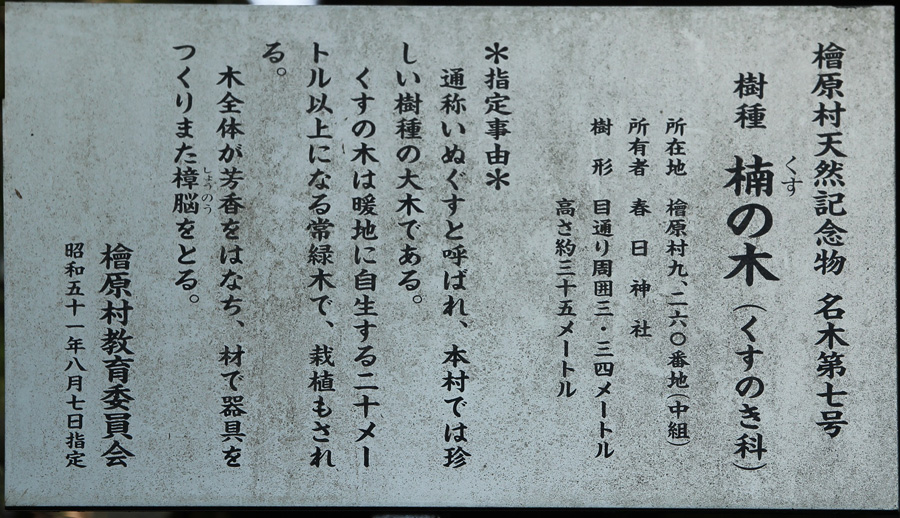 檜原村天然記念物 名木第七号
樹種 楠の木(くすのき科)
くす
所在地 檜原村九、二六〇番地(中組)
所有者 春日神社
樹形 目通り周囲三・三四メートル
高さ約三十五メートル
＊指定事由＊
通称いぬぐすと呼ばれ、本村では珍
しい樹種の大木である。
くすの木は暖地に自生する二十メー
トル以上になる常緑木で、栽植もされ
る。
木全体が芳香をはなち、材で器具を
つくりまた樟脳をとる。
しょうのう
檜原村教育委員会
昭和五十一年八月七日指定